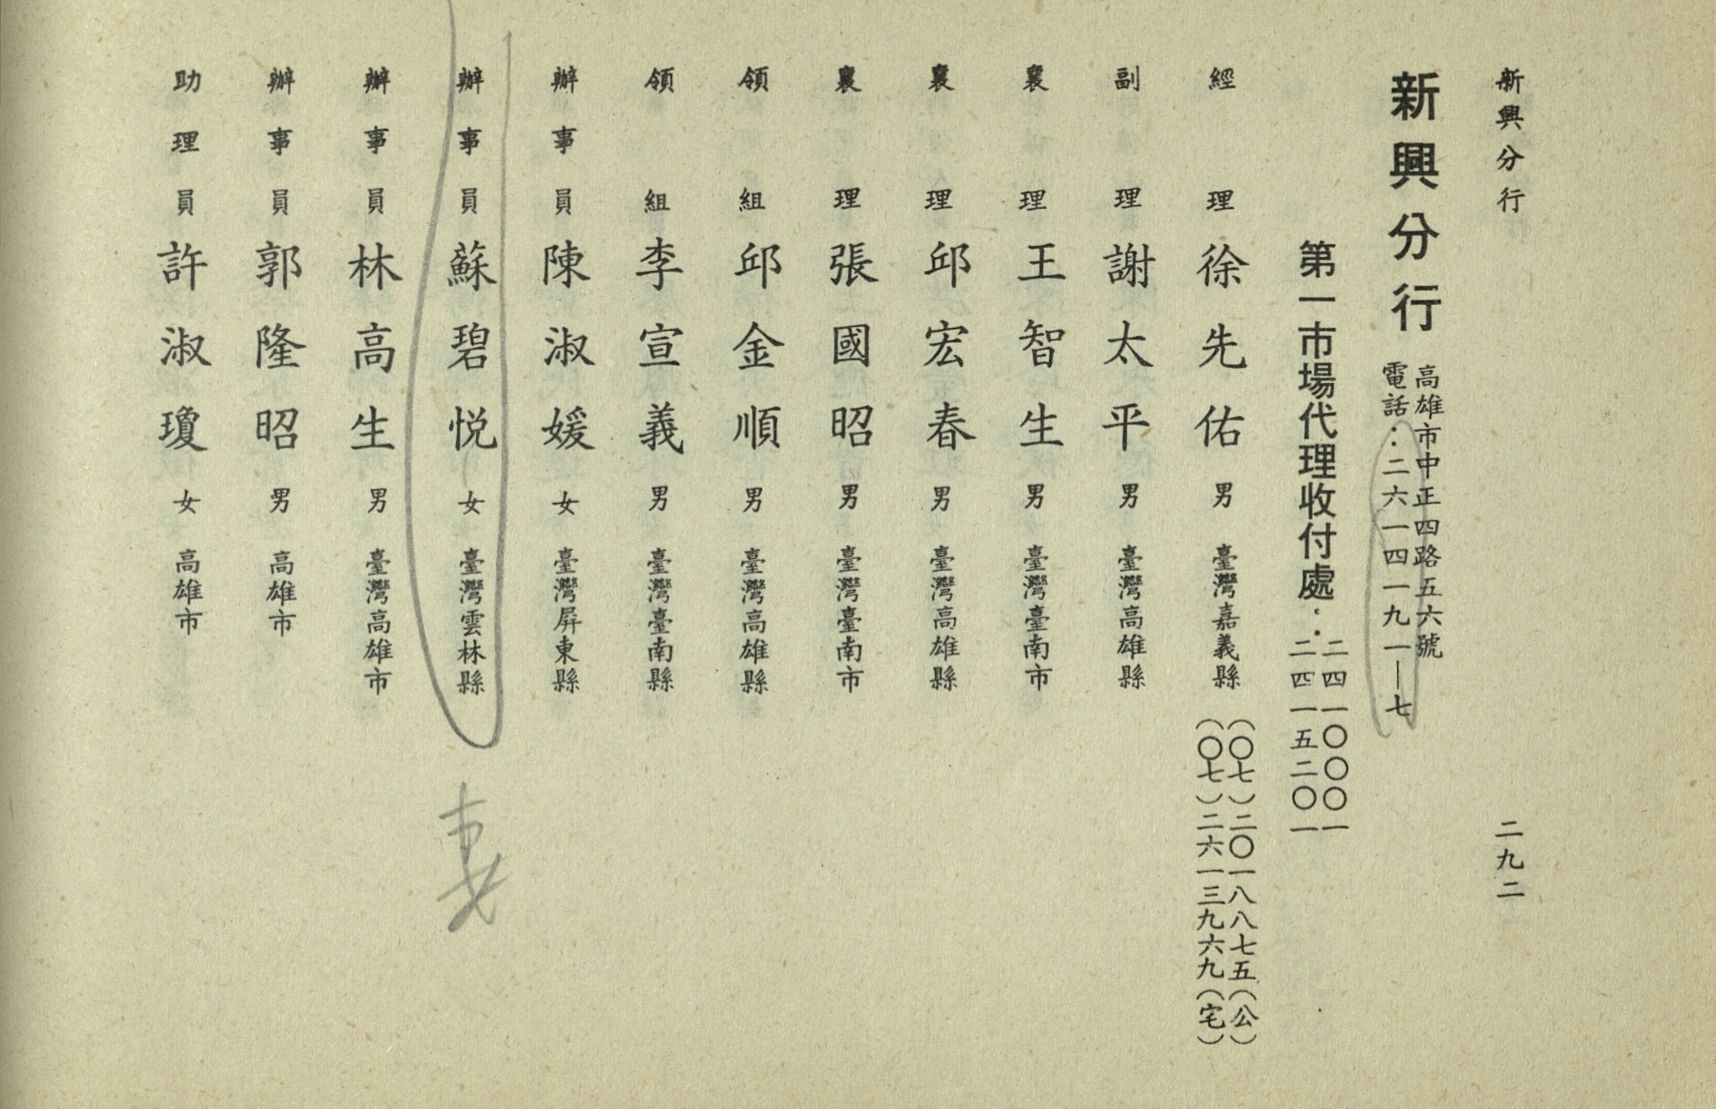 新興分行
二九二
新興分行
高雄市中正四路五六號
電話：二六一四一九一—七
第一市場代理收付處：
二四一〇〇〇一
二四一五二〇一
經理 徐先佑 男 臺灣嘉義縣
（〇七）二〇一八八七五（公）
（〇七）二六一三九六九（宅）
副理 謝太平 男 臺灣高雄縣
襄理 王智生 男 臺灣臺南市
襄理 邱宏春 男 臺灣高雄縣
襄理 張國昭 男 臺灣臺南市
領組 邱金順 男 臺灣高雄縣
領組 李宣義 男 臺灣臺南縣
辦事員 陳淑媛 女 臺灣屏東縣
辦事員 蘇碧悦 女 臺灣雲林縣
妻
辦事員 林高生 男 臺灣高雄市
辦事員 郭隆昭 男 高雄市
助理員 許淑瓊 女 高雄市